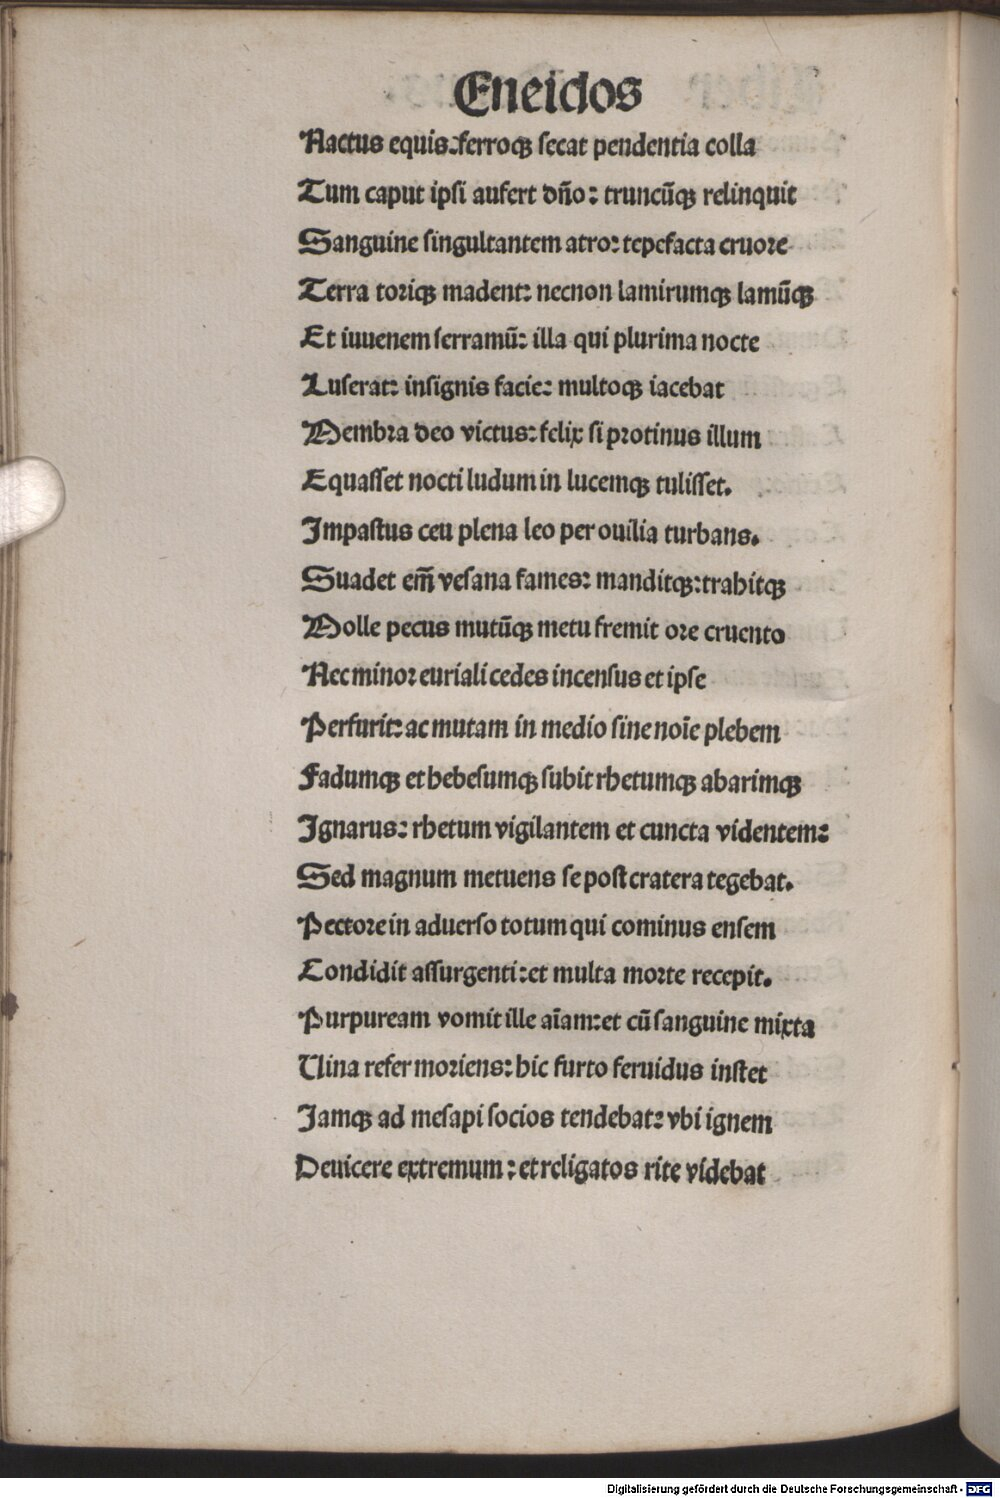 Eneidos
Nactus equis: ferroqꝫ ſecat pendentia colla
Tum caput ipſi aufert dño: truncūqꝫ relinquit
Sanguine ſingultantem atro: tepefacta cruore
Terra toriqꝫ madent: necnon lamirumqꝫ lamūqꝫ
Et iuuenem ſerramū: illa qui plurima nocte
Luſerat: inſignis facie: multoqꝫ iacebat
Membra deo victus: felix ſi protinus illum
Equaſſet nocti ludum in lucemqꝫ tuliſſet.
Impaſtus ceu plena leo per ouilia turbans.
Suadet em̄ veſana fames: manditqꝫ: trahitqꝫ
Molle pecus mutūqꝫ metu fremit ore cruento
Nec minor euriali cedes incenſus et ipſe
Perfurit: ac mutam in medio ſine noīe plebem
Fadumqꝫ et hebeſumqꝫ ſubit rhetumqꝫ abarimqꝫ
Ignarus: rhetum vigilantem et cuncta videntem:
Sed magnum metuens ſe poſt cratera tegebat.
Pectore in aduerſo totum qui cominus enſem
Condidit aſſurgenti: et multa morte recepit.
Purpuream vomit ille aīam: et cū ſanguine mixta
Uina refer moriens: hic furto feruidus inſtet
Iamqꝫ ad meſapi ſocios tendebat: vbi ignem
Deuicere extremum: et religatos rite videbat
Digitalisierung gefördert durch die Deutsche Forschungsgemeinschaft - DFG